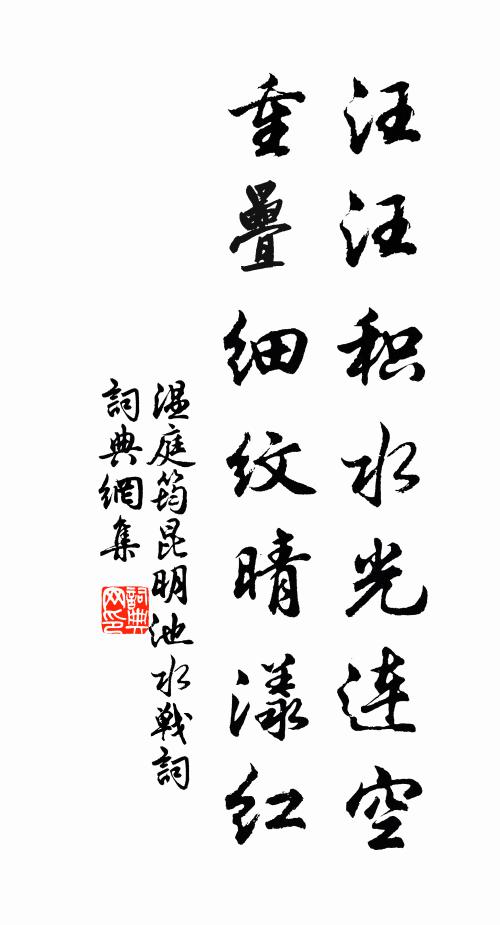 汪汪积水光连空
重疊细纹晴漾红
温庭筠昆明池水戦詞
詞典網集
詞典网印